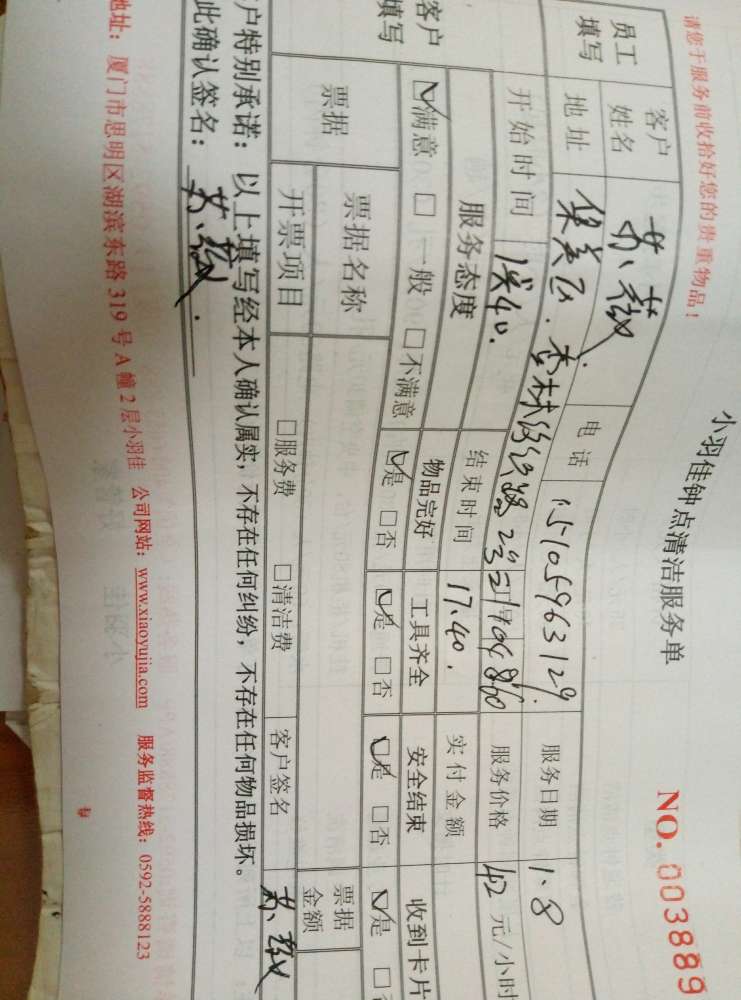 小羽佳钟点清洁服务单
NO. 003889
请您于服务前收拾好您的贵重物品！
员工填写 客户姓名 电话 15105963129. 服务日期 1.8
地址 集美区. 杏林 服务价格 42 元/小时
开始时间 结束时间 17.40. 实付金额
客户填写 服务态度 物品完好 工具齐全 安全结束 收到卡片
☑满意 □一般 □不满意 ☑是 □否 ☑是 □否 ☑是 □否 ☑是 □否
票据 票据名称 票据金额
开票项目 □服务费 □清洁费 客户签名
户特别承诺：以上填写经本人确认属实，不存在任何纠纷，不存在任何物品损坏。
此确认签名：
地址：厦门市思明区湖滨东路 319 号 A 幢 2 层小羽佳 公司网站：www.xiaoyujia.com 服务监督热线：0592-5888123